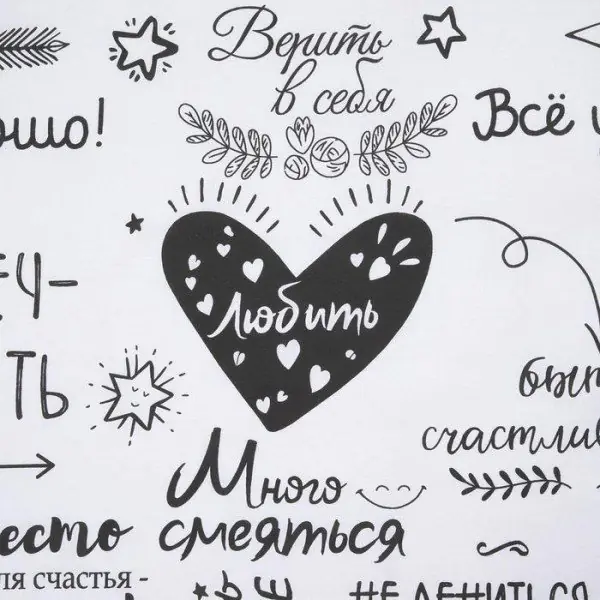 Верить
в себя
ошо!
Всё
Любить
еч-
ть
Много
смеяться
есто
ля счастья -
#НЕ ЛЕНИТЬСЯ